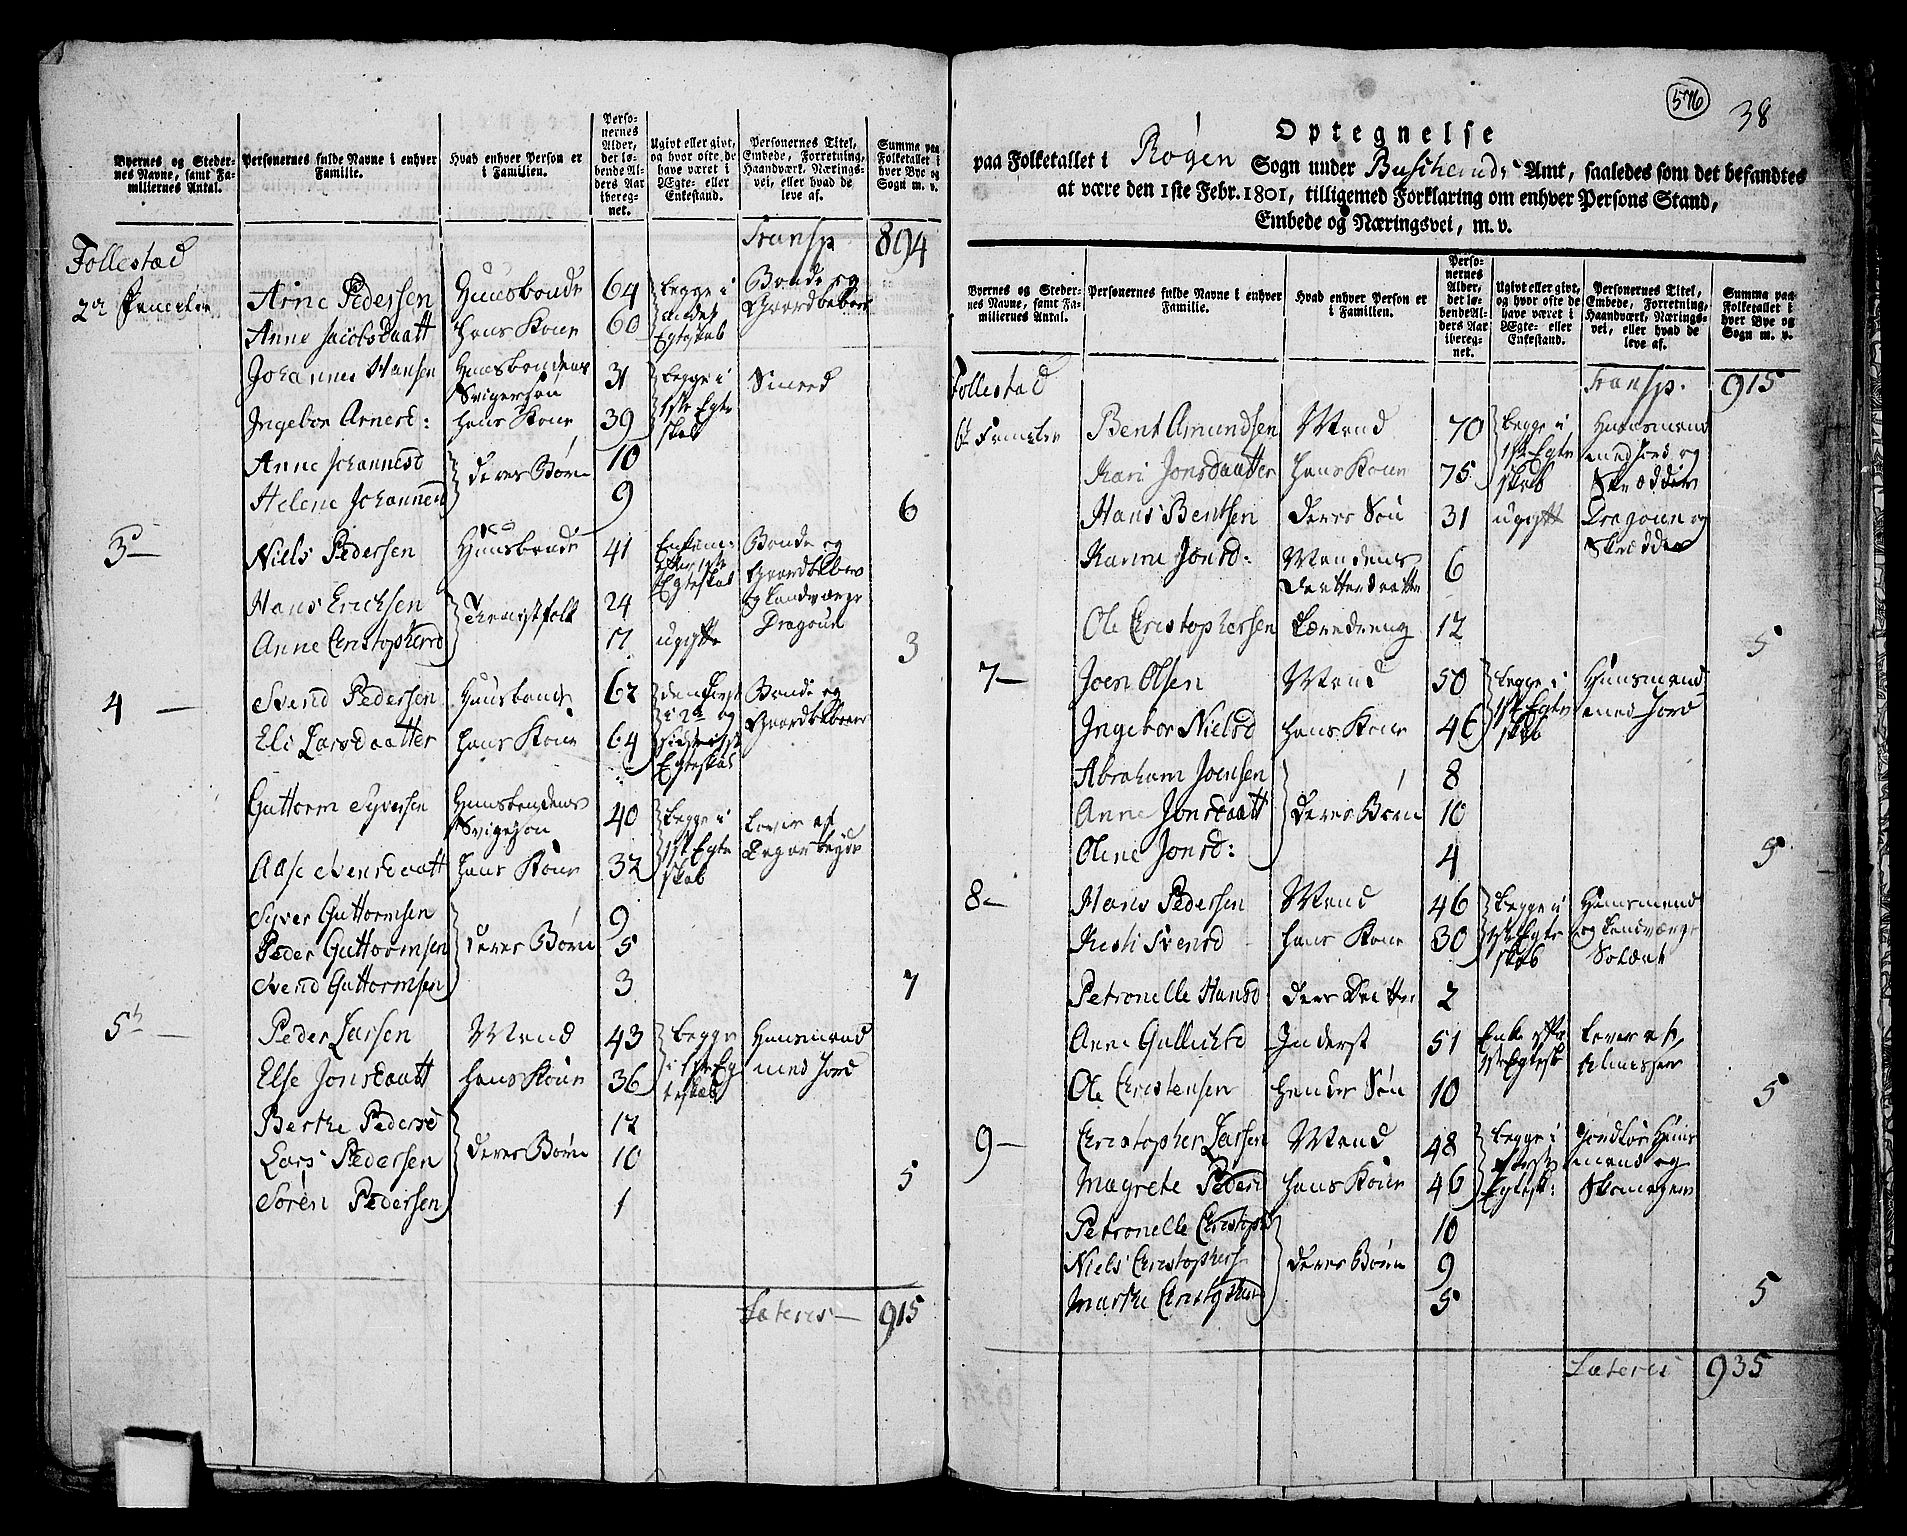 Byernes og Steder-
nes Navne, samt Fa-
miliernes Antal.
Personernes fulde Navne i enhver
Familie.
Hvad enhver Person er
i Familien.
Perso-
nernes
Alder,
det lø-
bende Al-
ders Aar
ibereg-
net.
Ugivt eller givt,
og hvor ofte de
have været i
Ægte- eller
Enkestand.
Personernes Titel,
Embede, Forretning,
Haandværk, Nærings-
vei, eller hvad de
leve af.
Summa paa
Folketallet i
hver Bye og
Sogn m. v.
Transp. 894
Follestad
2den Familie Arne Pedersen Huusbonde 64 begge i Bonde og
Anne Jacobsdaatt hans Kone 60 andet Gaardbeboer
Egteskab
Johannes Hansen Huusbondens 31 begge i Smed
Svigersøn
Ingebor Arnesd: hans Kone 39 1ste Egte
skab
Anne Johannesd deres Børn 10
Helene Johannesd 9 6
3 — Niels Pedersen Huusbonde 41 Enkem: Bonde og
efter 1ste Gaardbeboer
Egteskab
Hans Erichsen Tienistfolk 24 og Landværge
Anne Christophersd 17 ugifte Dragoun 3
4 — Svend Pedersen Huusbonde 62 Bonde og
i 2det og Gaardbeboer
Eli Larsdaatter hans Kone 64
Egteskab
Guttorm Syversen Huusbondens 40 begge i Lever af
Svigersøn
1ste Egte
Aase Svensdaatt hans Kone 32 skab
Syver Guttormsen 9
Peder Guttormsen deres Børn 5
Svend Guttormsen 3 7
5 — Peder Larsen Mand 43 begge Huusmand
Else Jonsdaatt hans Kone 36 i 1ste Eg med Jord
teskab
Berthe Pedersd 12
Lars Pedersen deres Børn 10
Søren Pedersen 1 5
Lateris — 915
576
38
Optegnelse
paa Folketallet i Røgen Sogn under Buscheruds Amt, saaledes som det befandtes
at være den 1ste Febr. 1801, tilligemed Forklaring om enhver Persons Stand,
Embede og Næringsvei, m. v.
Byernes og Steder-
nes Navne, samt Fa-
miliernes Antal.
Personernes fulde Navne i enhver
Familie.
Hvad enhver Person er
i Familien.
Perso-
nernes
Alder,
det lø-
bende Al-
ders Aar
ibereg-
net.
Ugivt eller givt,
og hvor ofte de
have været i
Ægte- eller
Enkestand.
Personernes Titel,
Embede, Forretning,
Haandværk, Nærings-
vei, eller hvad de
leve af.
Summa paa
Folketallet i
hver Bye og
Sogn m. v.
Transp. 915
Follestad
6te Familie Bent Amundsen Mand 70 begge i Huusmand
1ste Egte med Jord og
Kari Jonsdaatter hans Kone 75 skab Skrædder
Hans Bentsen deres Søn 31 ugift Dragoun og
Skrædder
Karine Jonsd: Mandens 6
Datterdaatter
Ole Christophersen Læredreng 12 5
7 — Joen Olsen Mand 50 begge i Huusmand
1ste Egte med Jord
Ingebor Nielsd hans Kone 46 skab
Abraham Joensen 8
Anne Jonsdaatt deres Børn 10
Oline Jonsd: 4 5
8 — Hans Pedersen Mand 46 begge i Huusmand
1ste Egte og Landværge
Kisti Svensd hans Kone 30 skab Soldat
Petronelle Hansd deres Datter 2
Anne Gullichsd Inderst 51 Enke efter Lever af
1ste Egtesk Almisser
Ole Christensen hendes Søn 10 5
9 — Christopher Larsen Mand 48 begge i Jordløs Huus
mand og
Magrete Pedersd hans Kone 46 Egtesk: Skomager
Petronelle Christophd 10
Niels Christophers deres Børn 9
Marthe Christophersd 5 5
Lateris 935